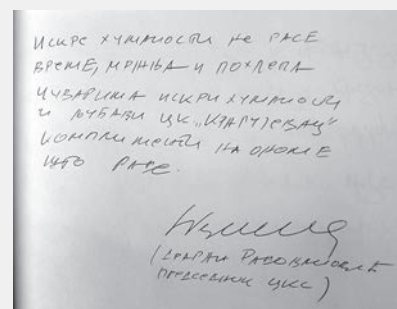 Искре хуманости не гасе
време, мржња и похлепа
чуварима искри хуманости
и љубави ЦК „Крагујевац"
комплименти на ономе
што раде.
(Драган Радовановић
председник ЦКС)